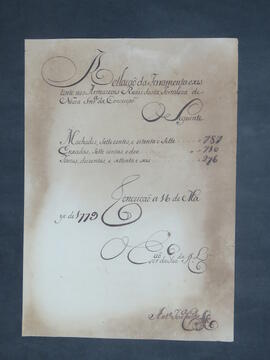 Rellação da Ferramenta exis
tente nos Armazens Reais desta Fortaleza de
Nossa Snrª da Conceição
O Seguinte
Machados, Sette centos, e outenta e Sette 787
Enxadas, Sette centas, e des 710
Fouces, duzentas, e settenta e seis 276
Conceição a 16 de Ma
yo de 1779